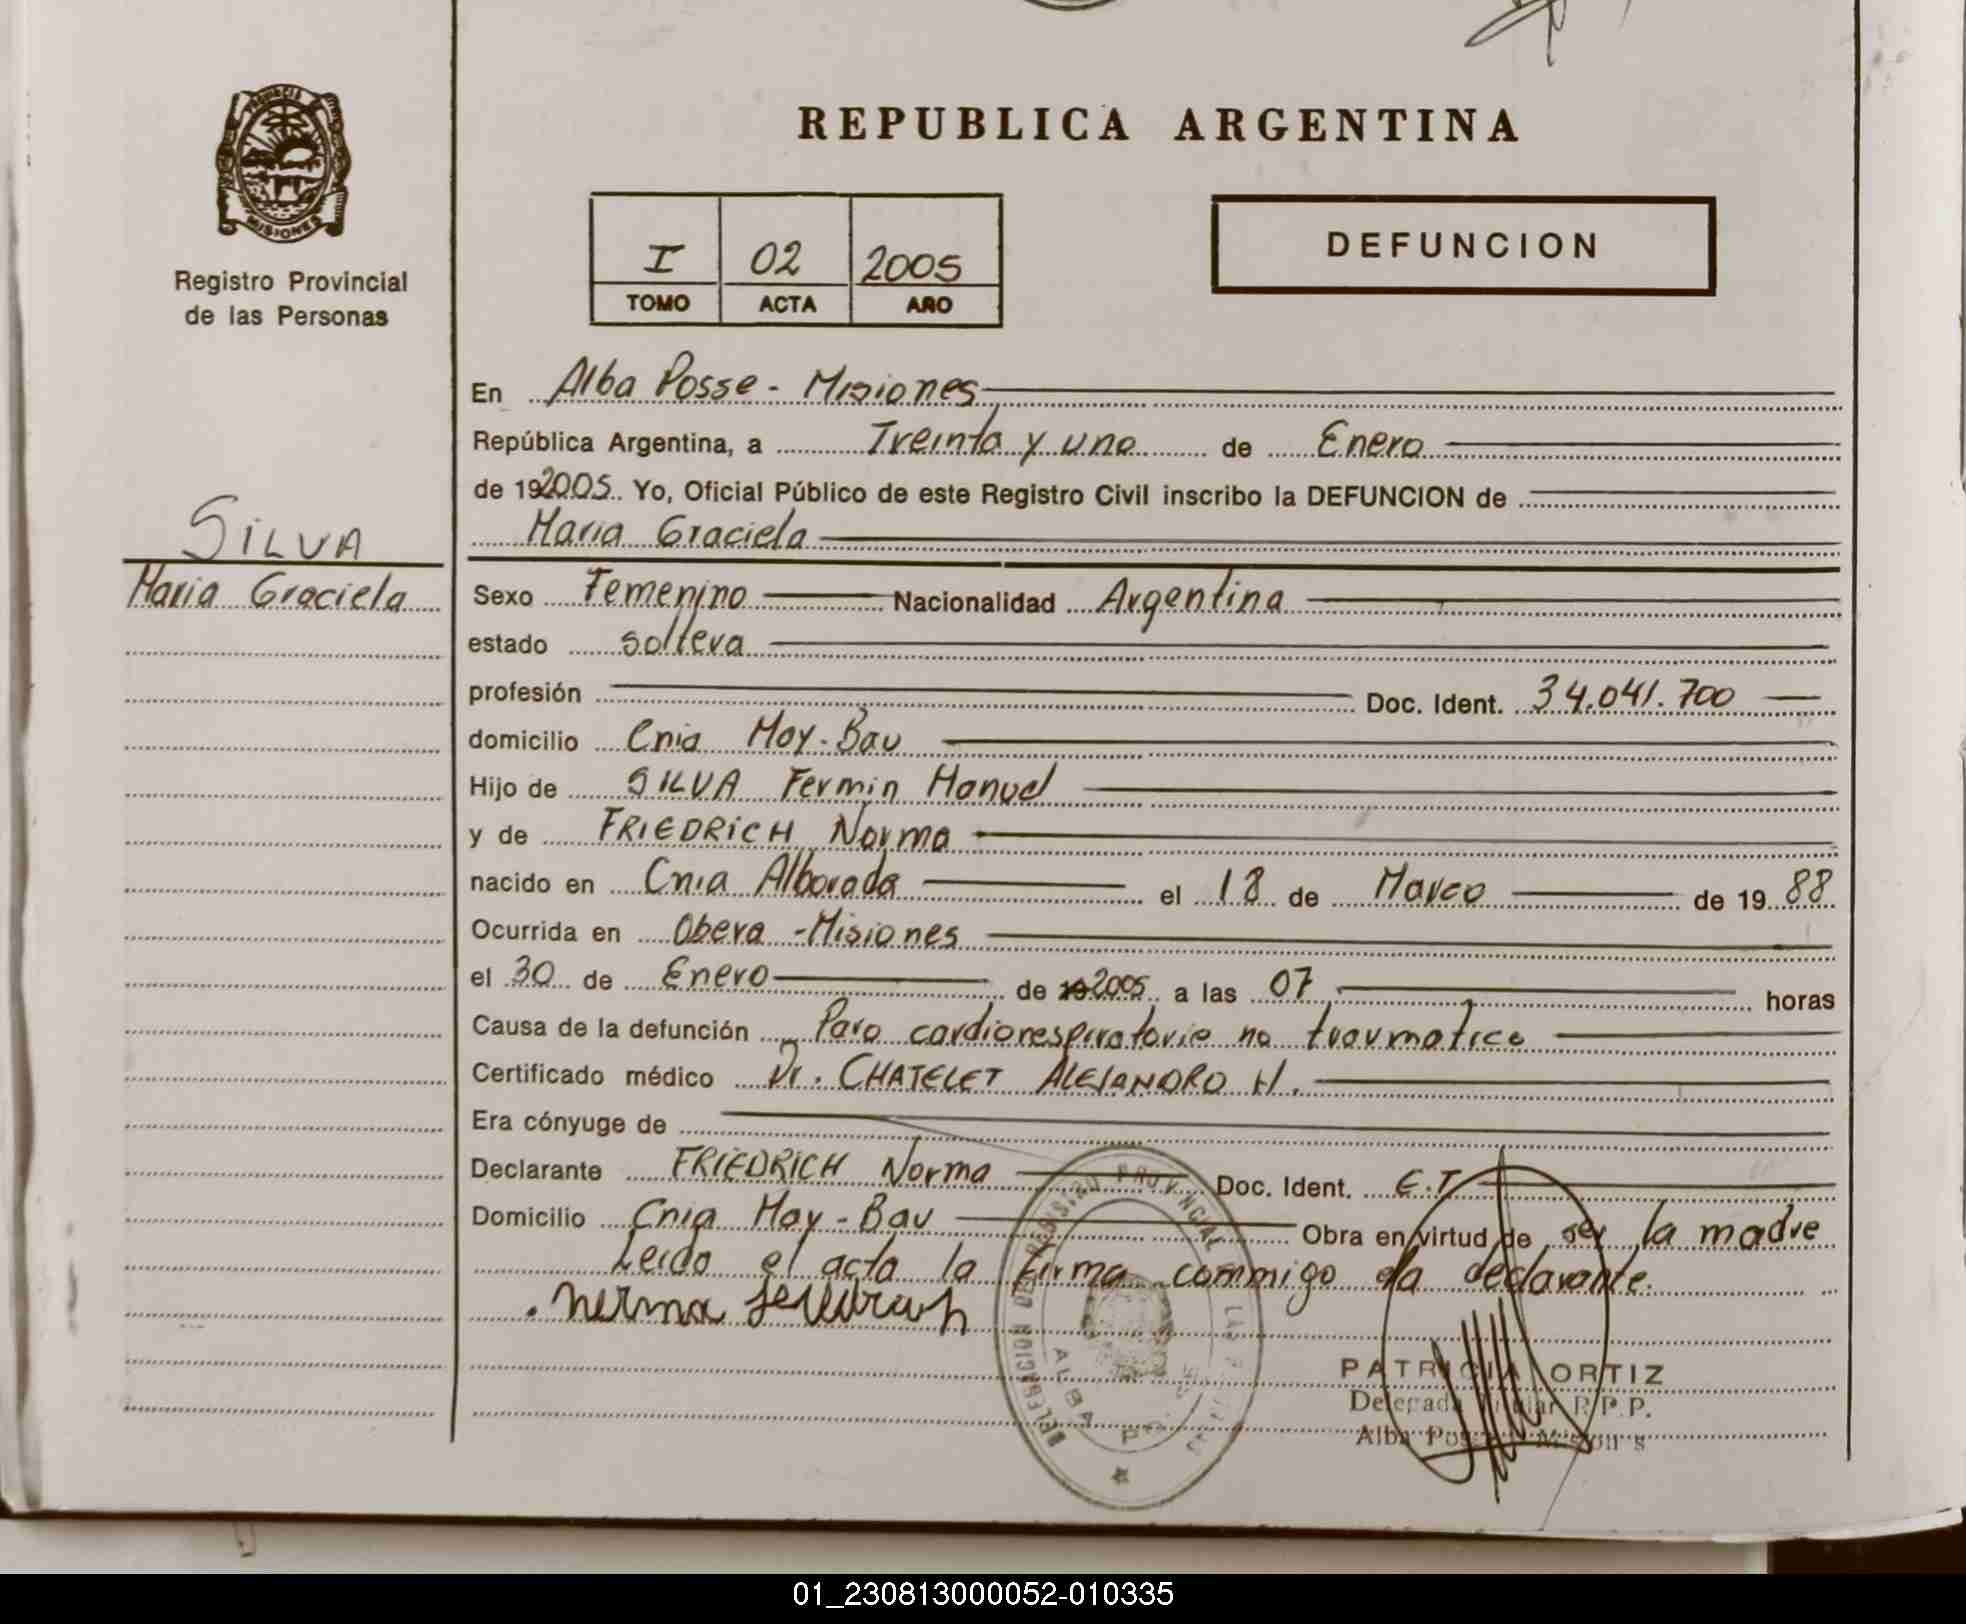 PROVINCIA
MISIONES
Registro Provincial
de las Personas
SILVA
Maria Graciela
REPUBLICA ARGENTINA
I 02 2005
TOMO ACTA AÑO
DEFUNCION
En Alba Posse - Misiones
República Argentina, a Treinta y uno de Enero
de 192005. Yo, Oficial Público de este Registro Civil inscribo la DEFUNCION de
Maria Graciela
Sexo Femenino Nacionalidad Argentina
estado soltera
profesión Doc. Ident. 34.041.700
domicilio Cnia May-Bau
Hijo de SILVA Fermin Manuel
y de FRIEDRICH Norma
nacido en Cnia Alborada el 18 de Marzo de 19 88
Ocurrida en Obera - Misiones
el 30 de Enero de 19 2005 a las 07 horas
Causa de la defunción Paro cardiorespiratorio no traumatico
Certificado médico Dr. CHATELET ALEJANDRO H.
Era cónyuge de
Declarante FRIEDRICH Norma Doc. Ident. E.T
Domicilio Cnia May-Bau Obra en virtud de ser la madre
Leido el acta la firma commigo la declarante.
PATRICIA ORTIZ
Delegada Titular R.P.P.
Alba Posse Misiones
01_230813000052-010335